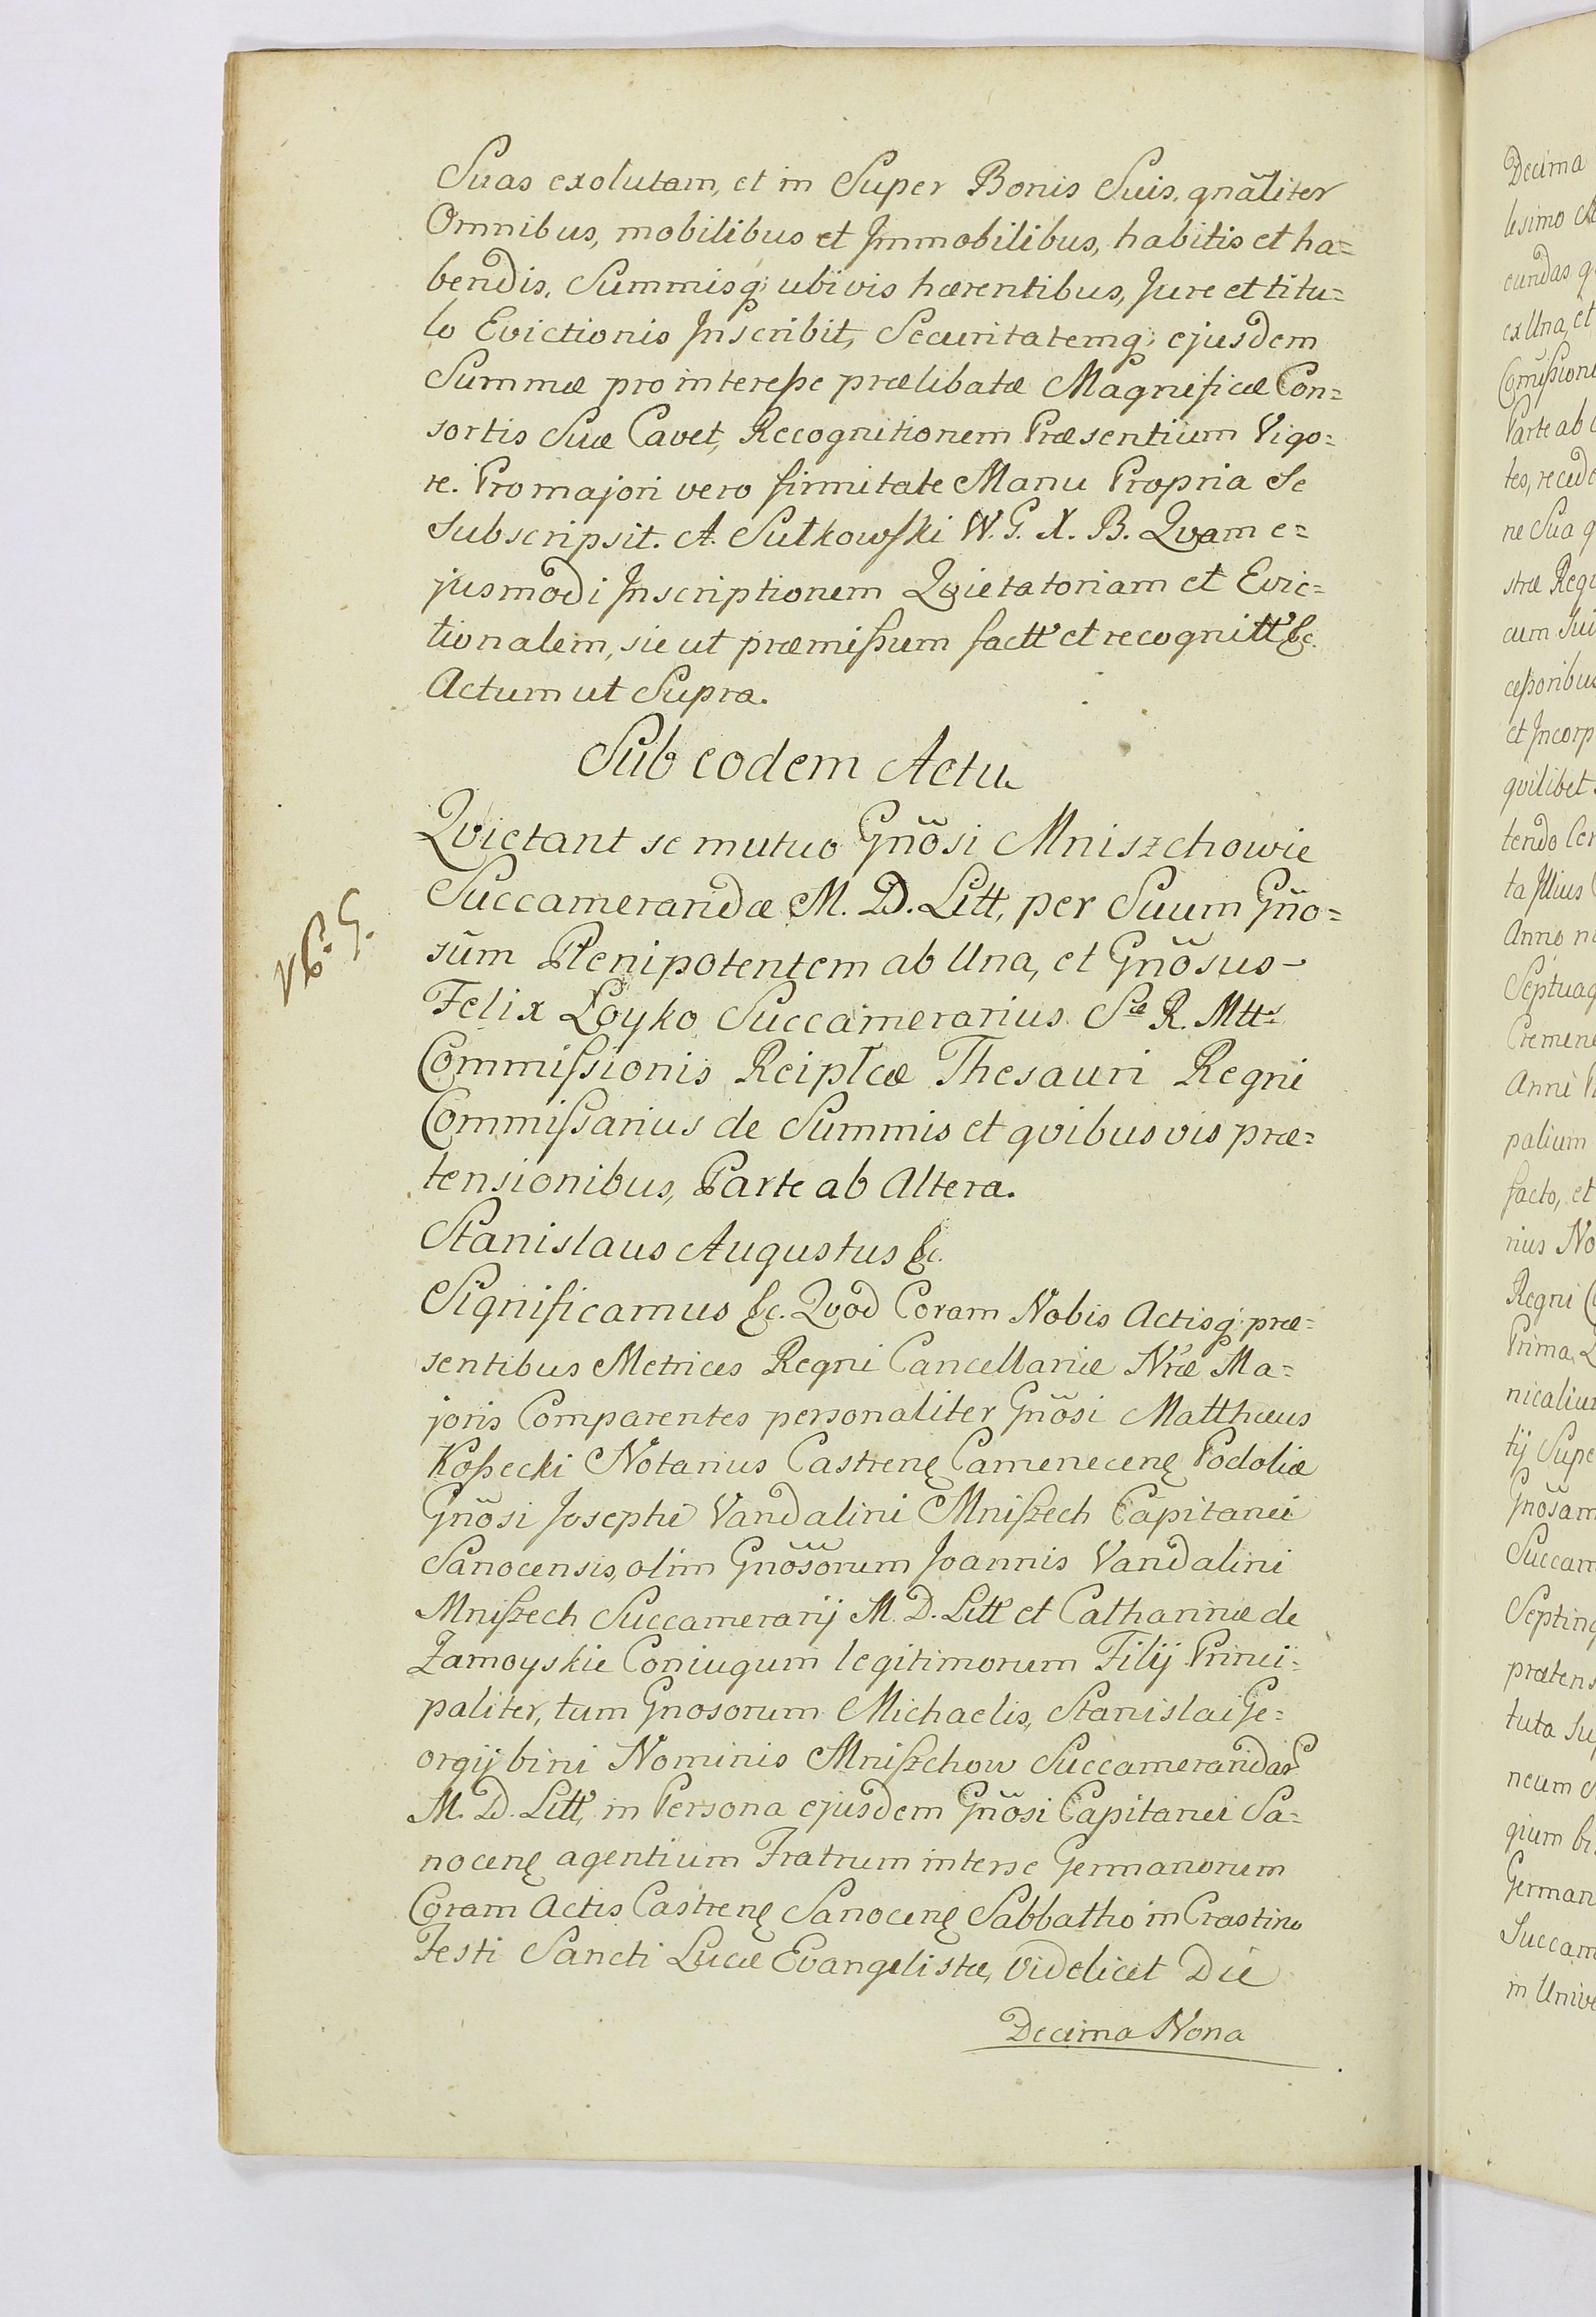 Suas exolutam, et in Super Bonis Suis, gnãliter
Omnibus, mobilibus et Immobilibus, habitis et ha=
bendis, Summisq; ubivis hærentibus, Jure et titu=
lo Evictionis Inscribit, Securitatemq; ejusdem
Summæ pro interesse prælibatæ Magnificæ Con=
sortis Suæ Cavet, Recognitionem Præsentium Vigo=
re. Pro majori vero firmitate Manu Propria Se
Subscripsit. A. Sułkowski W. G. X. B. Qvam e=
jusmodi Inscriptionem Qvietatoriam et Evic=
tionalem, sic ut præmissum factt et recognitt &c.
Actum ut Supra.
Sub eodem Actu
Qvietant se mutuo Gnõsi Mniszchowie
Succamerandæ M. D. Litt, per Suum Gño=
sũm Plenipotentem ab Una, et Gnõsus
Felix Łoyko Succamerarius Sæ R. Mtts
Commissionis Reiplcæ Thesauri Regni
Commissarius de Summis et qvibusvis præ=
tensionibus, Parte ab Altera.
Stanislaus Augustus &c.
Significamus &c. Qvod Coram Nobis Actisq; præ=
sentibus Metrices Regni Cancellariæ Nræ Ma=
joris Comparentes personaliter Gnõsi Matthæus
Kossecki Notarius Castrenę Camenecenę Podoliæ
Gnõsi Josephi Vandalini Mniszech Capitanei
Sanocensis, olim Gnõsõrum Joannis Vandalini
Mniszech Succamerarij M. D. Litt et Catharinæ de
Zamoyskie Coniugum legitimorum Filij Princi=
paliter, tum Gnosorum Michaelis, Stanislai Ge=
orgij bini Nominis Mniszchow Succamerandas
M. D. Litt, in Persona ejusdem Gnõsi Capitanei Sa=
nocenę agentium Fratrum interse Germanorum
Coram Actis Castrenę Sanocenę Sabbatho in Crastino
Festi Sancti Lucæ Evangelistæ, Videlicet Die
Decima Nona
Decima
lesimo
eundas
ex Una, et
Parte ab
ne Sua
stræ
cum
cessoribus
et Incorp
qvilibet
tendo
ta Illius
Anno
Septuag
Anni
palium
facto, et
nius
Regni
Prima
tij Supe
Gnõsam
Septing
prætens
tuta
gium
German
in Unive